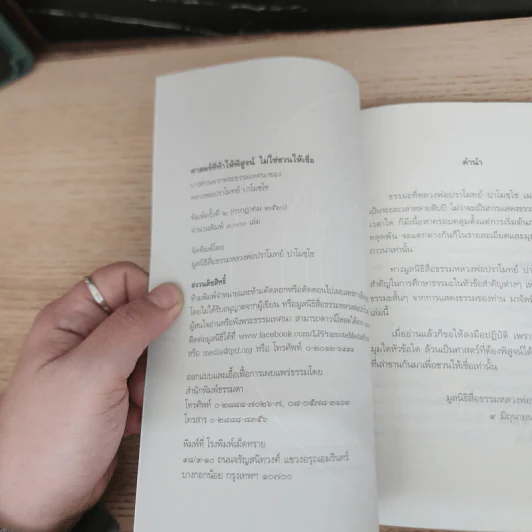 ศาสตร์ที่ท้าให้พิสูจน์ ไม่ใช่ชวนให้เชื่อ
บางส่วนจากพระธรรมเทศนาของ
หลวงพ่อปราโมทย์ ปาโมชฺโช
พิมพ์ครั้งที่ ๒ (กรกฎาคม
จำนวนพิมพ์ เล่ม
จัดพิมพ์โดย
มูลนิธิสื่อธรรมหลวงพ่อปราโมทย์ ปาโมชฺโช
สงวนลิขสิทธิ์
ห้ามพิมพ์จำหน่ายและห้ามคัดลอกหรือตัดตอนไปเผยแพร่ทาง
โดยไม่ได้รับอนุญาตจากผู้เขียน หรือมูลนิธิสื่อธรรมหลวงพ่อ
ผู้สนใจอ่านหรือฟังพระธรรมเทศนา สามารถดาวน์โหลดได้จาก
ติดต่อมูลนิธิได้ที่ www.facebook.com/LPPramoteMediaFun
หรือ media@lpf.org หรือ โทรศัพท์
ออกแบบและเอื้อเฟื้อการเผยแพร่ธรรมโดย
สำนักพิมพ์ธรรมดา
โทรศัพท์ ๐-๒๘๘๘-๗๐๒๖-๗,
โทรสาร ๐-๒๘๘๘-๘๓๕๖
พิมพ์ที่ โรงพิมพ์เม็ดทราย
๙๘/๙-๑๐ ถนนจรัญสนิทวงศ์ แขวงอรุณอมรินทร์
บางกอกน้อย กรุงเทพฯ ๑๐๗๐๐
คำนำ
ธรรมะที่หลวงพ่อปราโมทย์ ปาโมชฺโช
เป็นระยะเวลาหลายสิบปี ไม่ว่าจะเป็นการแสดงธรรม
เวลาใด ก็มีเนื้อหาครอบคลุมตั้งแต่การเริ่มต้น
หลุดพ้น จะแตกต่างกันก็ในรายละเอียดและมุม
ภาวนาเท่านั้น
ทางมูลนิธิสื่อธรรมหลวงพ่อปราโมทย์
สำคัญในการศึกษาธรรมะในหัวข้อสำคัญต่างๆ
ธรรมะสั้นๆ จากการแสดงธรรมของท่าน
เล่มนี้
เมื่ออ่านแล้วก็ขอให้ลงมือปฏิบัติ
มุมใดหัวข้อใด ล้วนเป็นศาสตร์ที่ต้องพิสูจน์
ที่เล่าขานกันมาเพื่อชวนให้เชื่อเท่านั้น
มูลนิธิสื่อธรรมหลวงพ่อ
๙ มิถุนายน